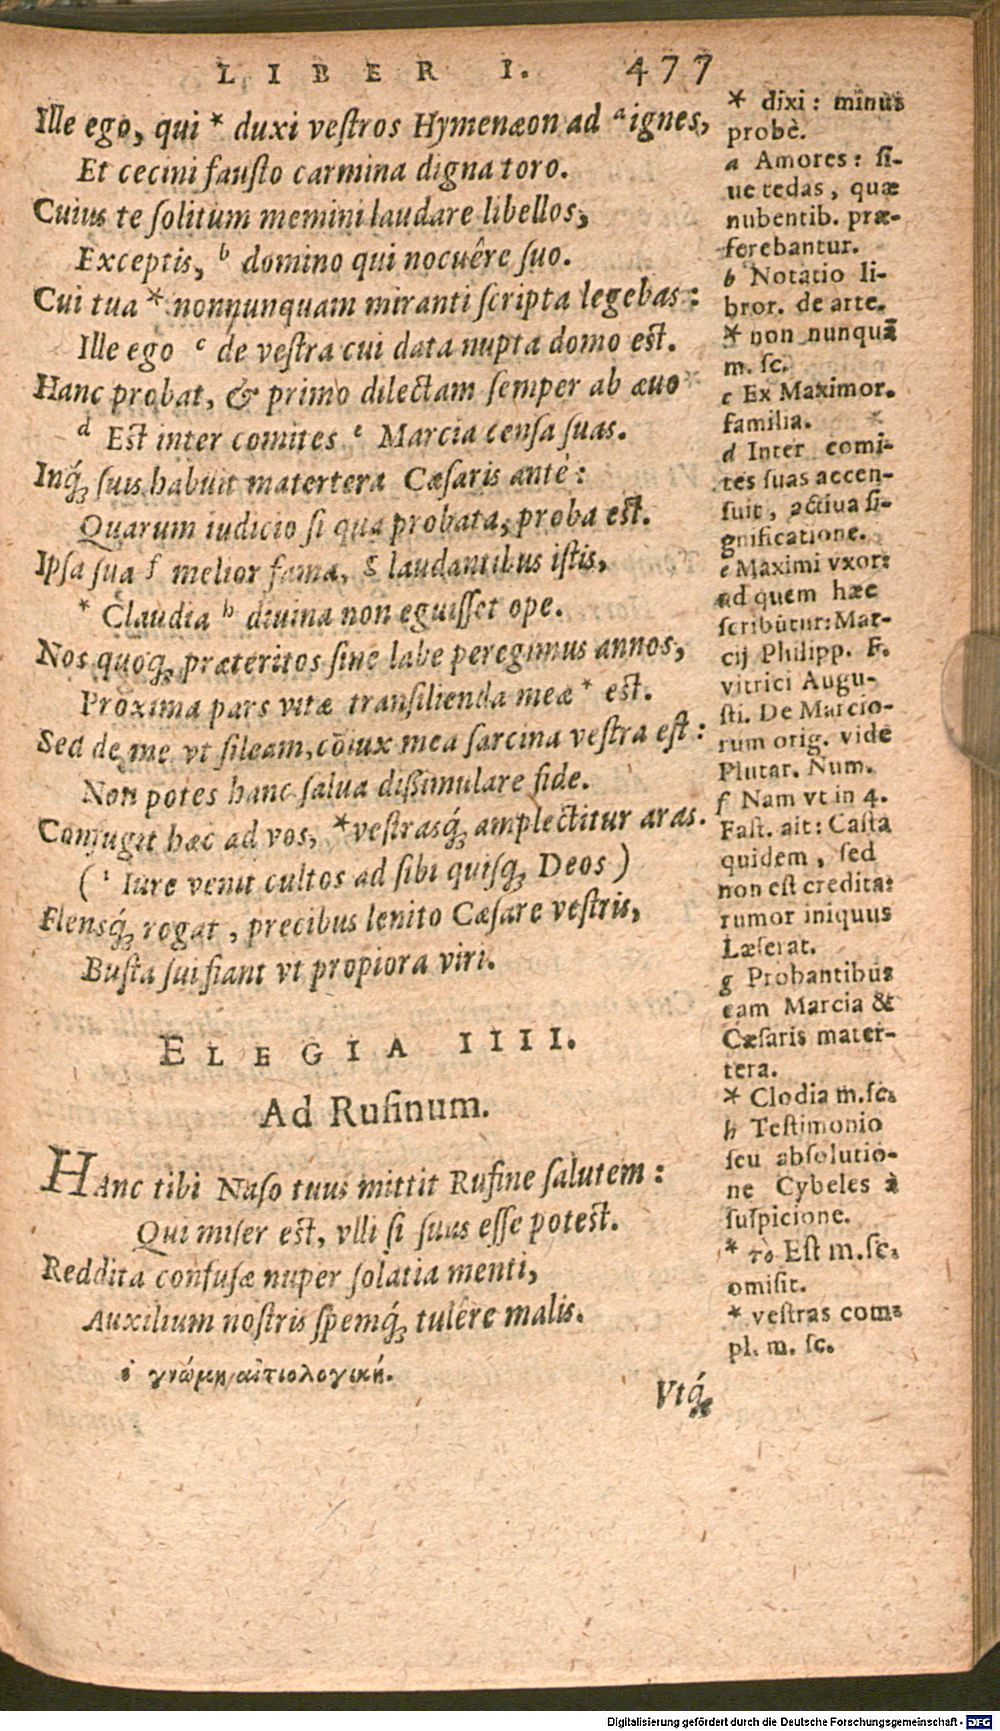 LIBER I. 477
Ille ego, qui * duxi veſtros Hymenæon ad ᵃ ignes,
Et cecini fauſto carmina digna toro.
Cuius te ſolitum memini laudare libellos,
Exceptis, ᵇ domino qui nocuêre ſuo.
Cui tua * nonnunquam miranti ſcripta legebas:
Ille ego ᶜ de veſtra cui data nupta domo eſt.
Hanc probat, & primo dilectam ſemper ab æuo
ᵈ Eſt inter comites ᵉ Marcia cenſa ſuas.
Inq́; ſuis habuit matertera Cæſaris antè:
Quarum iudicio ſi qua probata, proba eſt.
Ipſa ſua ᶠ melior fama, ᵍ laudantibus iſtis,
* Claudia ʰ diuina non eguiſſet ope.
Nos quoq; præteritos ſine labe peregimus annos,
Proxima pars vitæ tranſilienda meæ * eſt.
Sed de me vt ſileam, cõiux mea ſarcina veſtra eſt:
Non potes hanc ſalua diſſimulare fide.
Confugit hæc ad vos, * veſtrasq́; amplectitur aras.
( ⁱ Iure venit cultos ad ſibi quiſq; Deos )
Flensq́; rogat, precibus lenito Cæſare veſtris,
Buſta ſui fiant vt propiora viri.
ELEGIA IIII.
Ad Rufinum.
HAnc tibi Naſo tuus mittit Rufine ſalutem:
Qui miſer eſt, vlli ſi ſuus eſſe poteſt.
Reddita confuſæ nuper ſolatia menti,
Auxilium noſtris ſpemq́; tulêre malis.
i γνώμη αἰτιολογική.
Vtq́;
* dixi: minus
probè.
a Amores: ſi-
ue tedas, quæ
nubentib. præ-
ferebantur.
b Notatio li-
bror. de arte.
* non nunquã
m. ſc.
c Ex Maximor.
familia.
d Inter comi-
tes ſuas accen-
ſuit, actiua ſi-
gnificatione.
e Maximi vxor:
ad quem hæc
ſcribũtur: Mar-
cij Philipp. F.
vitrici Augu-
ſti. De Marcio-
rum orig. vide
Plutar. Num.
f Nam vt in 4.
Faſt. ait: Caſta
quidem, ſed
non eſt credita:
rumor iniquus
Læſerat.
g Probantibus
eam Marcia &
Cæſaris mater-
tera.
* Clodia m.ſc.
h Teſtimonio
ſeu abſolutio-
ne Cybeles à
ſuſpicione.
* τὸ Eſt m.ſc.
omiſit.
* veſtras com-
pl. m. ſc.
Digitalisierung gefördert durch die Deutsche Forschungsgemeinschaft - DFG